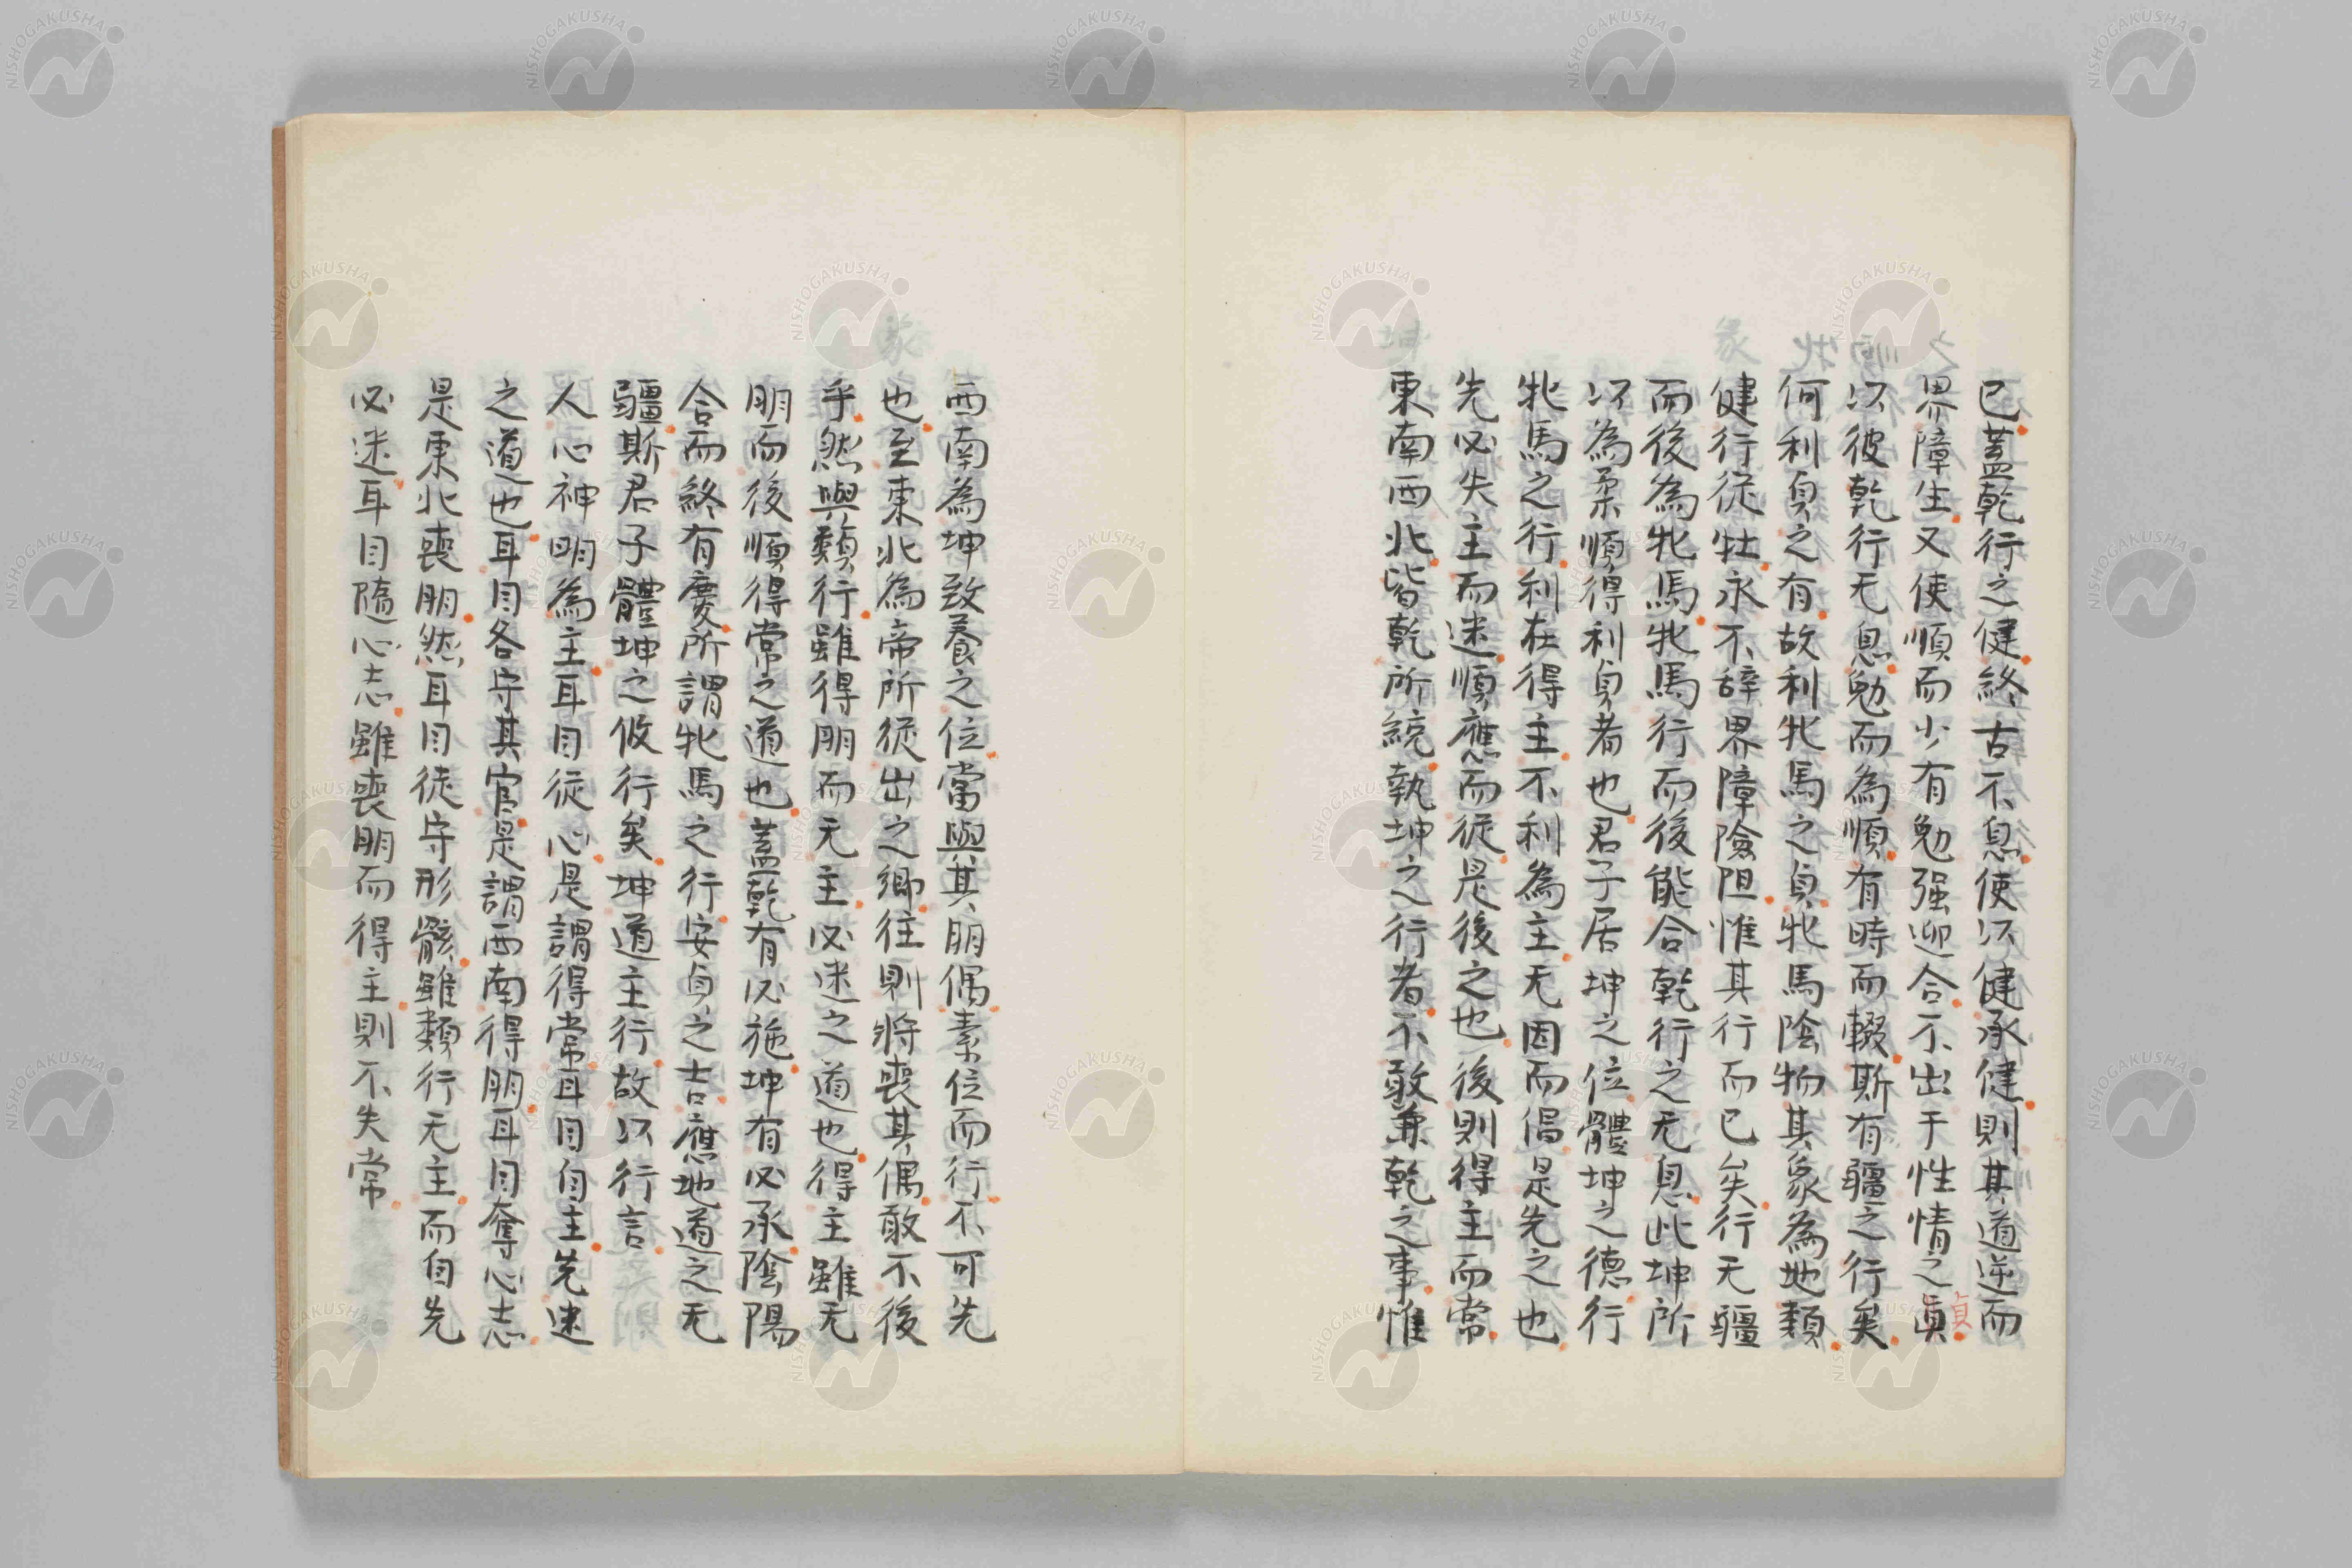 已蓋乾行之健終古不息使以健承健則其道逆而
界障生又使順而少有勉强迎合不出于性情之貞
貞
以彼乾行无息勉而為順有時而輟斯有疆之行矣
何利貞之有故利牝馬之貞牝馬陰物其象為地類
健行從牡永不辞界障險阻惟其行而已矣行无疆
而後為牝馬牝馬行而後能合乾行之无息此坤所
以為柔順得利貞者也君子居坤之位體坤之德行
牝馬之行利在得主不利為主无因而倡是先之也
先必失主而迷順應而從是後之也後則得主而常
東南西北皆乾所統執坤之行者不敢兼乾之事惟
西南為坤致養之位當與其朋偶素位而行不可先
也至東北為帝所從出之鄉往則將喪其偶敢不後
乎然與類行雖得朋而无主必迷之道也得主雖无
朋而後順得常之道也蓋乾有必施坤有必承陰陽
合而終有慶所謂牝馬之行安貞之吉應地道之无
疆斯君子體坤之攸行矣坤道主行故以行言
人心神明為主耳目從心是謂得常耳目自主先迷
之道也耳目各守其官是謂西南得朋耳目奪心志
是東北喪朋然耳目徒守形骸雖類行无主而自先
必迷耳目隨心志雖喪朋而得主則不失常
NISHOGAKUSHA